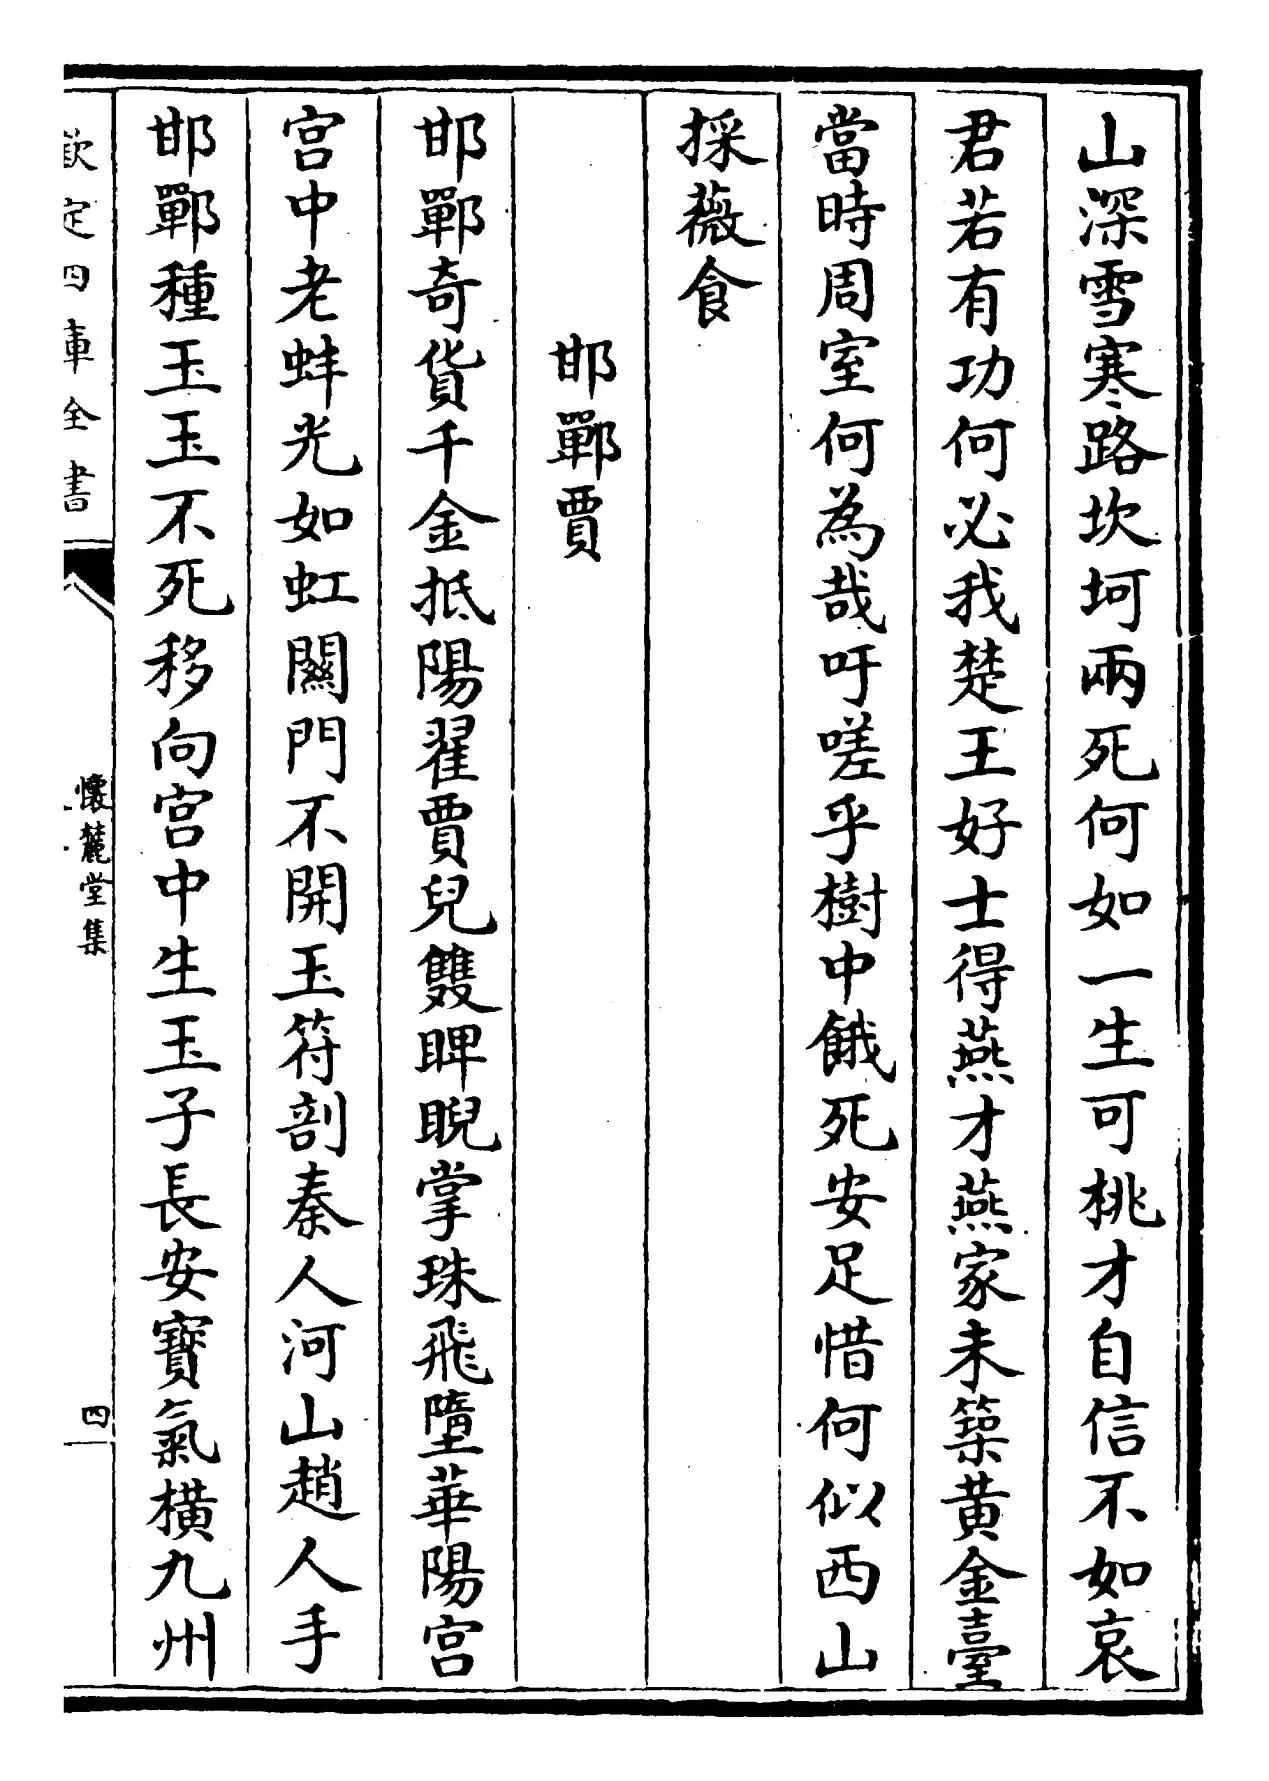 山深雪寒路坎坷兩死何如一生可桃才自信不如哀
君若有功何必我楚王好士得燕才燕家未築黄金臺
當時周室何為哉吁嗟乎樹中餓死安足惜何似西山
採薇食
邯鄲賈
邯鄲奇貨千金抵陽翟賈兒雙睥睨掌珠飛墮華陽宫
宫中老蚌光如虹關門不開玉符剖秦人河山趙人手
邯鄲種玉玉不死移向宫中生玉子長安寶氣橫九州
欽定四庫全書
懷麓堂集
四